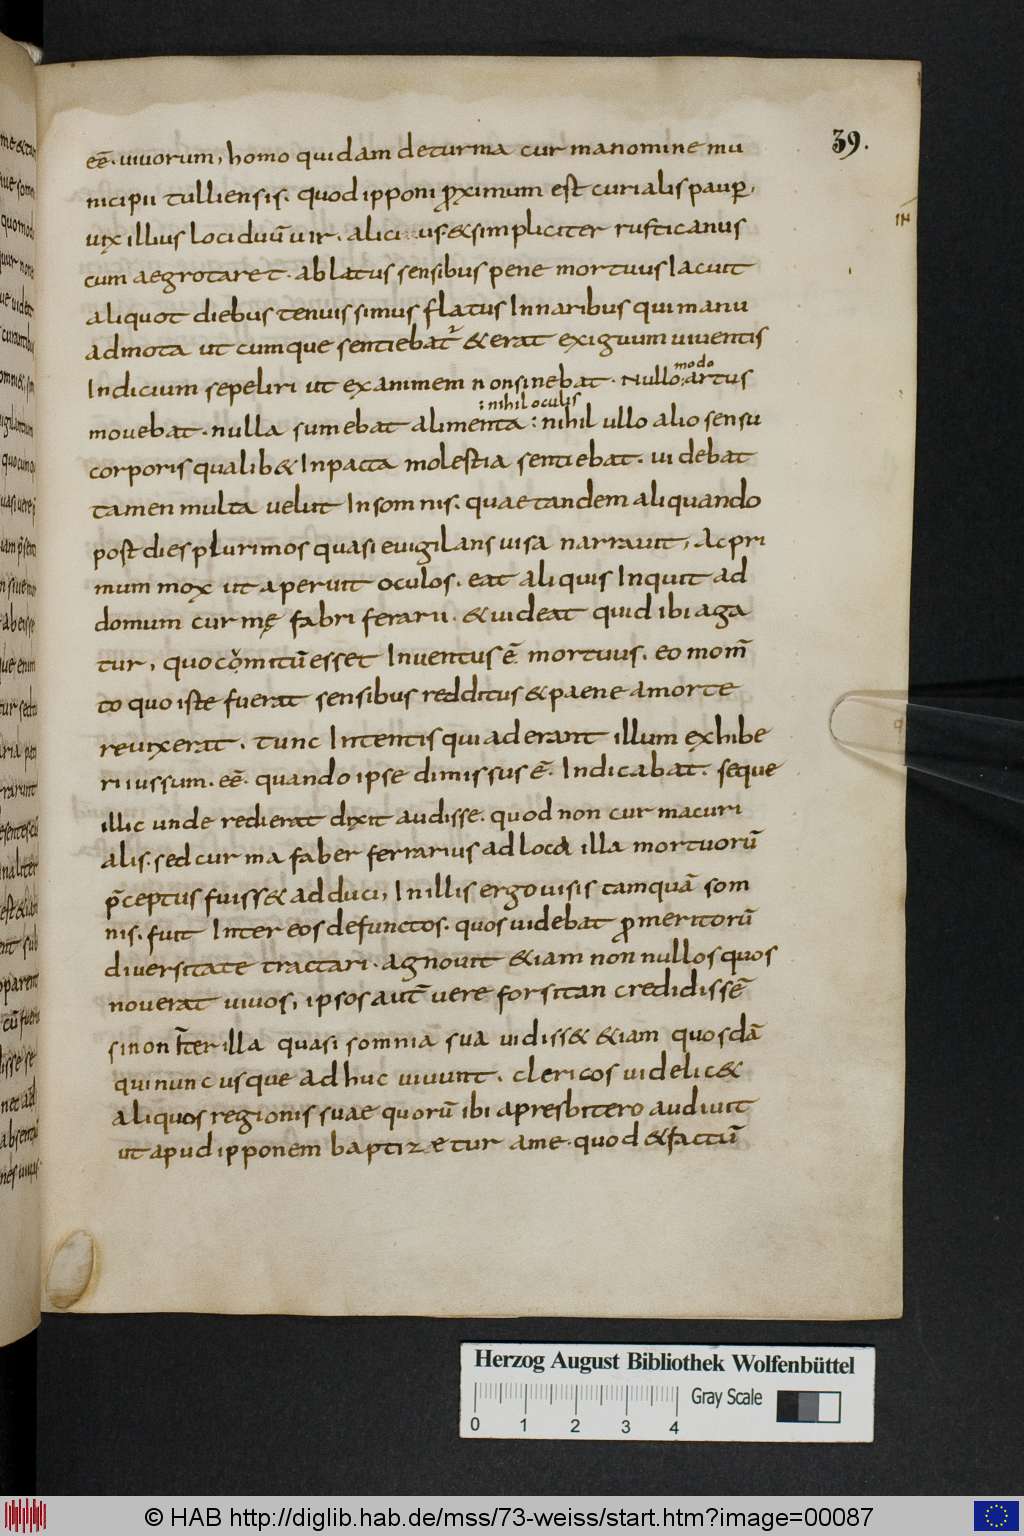 39.
eē. uiuorum, homo quidam deturma cur manomine mu
nicipii tulliensis. quod ipponi p̱ximum est curialis paup̱,
uix illius loci duū uir. alici us &simpliciter rusticanus
cum aegrotaret. ablatus sensibus pene mortuus Iacuit
aliquot diebus tenuissimus flatus Innaribus qui manu
admota utcumque sentiebat᷑ & erat exiguum uiuentis
Indicium sepeliri ut exanimem nonsinebat. Nullos artus
modo
mouebat. nulla sumebat alimenta : nihil ullo alio sensu
: nihil oculis
corporis qualib& Inpacta molestia sentiebat. uidebat
tamen multa uelut Insomnis. quae tandem aliquando
post dies plurimos quasi euigilans uisa narrauit, Ac pri
mum mox ut aperuit oculos. eat aliquis Inquit ad
domum curmę fabri ferarii. & uideat quid ibi aga
tur, quo cōmitū esset Inuentus ē mortuus. eo mom̄
to quo iste fuerat sensibus redditus & paene amorte
reuixerat. tunc Intentis qui aderant illum exhibe
ri iussum. eē. quando ipse dimissus ē. Indicabat. seque
illic unde redierat dixit audisse. quod non curma curi
alis. sed curma faber ferrarius ad loca illa mortuorū
p̄ceptus fuiss& adduci, Inillis ergo uisis tamquā som
nis. fuit Inter eos defunctos. quos uidebat p̱meritorū
diuersitate tractari. agnouit &iam non nullos quos
nouerat uiuos, ipsos aut̄ uere forsitan credidissē
sinon īter illa quasi somnia sua uidiss& &iam quosdā
qui nunc usque adhuc uiuunt. clericos uidelic&
aliquos regionis suae quorū ibi apresbitero audiuit
ut apud ipponem baptizetur ame. quod & factū
Herzog August Bibliothek Wolfenbüttel
Gray Scale
0 1 2 3 4
© HAB http://diglib.hab.de/mss/73-weiss/start.htm?image=00087